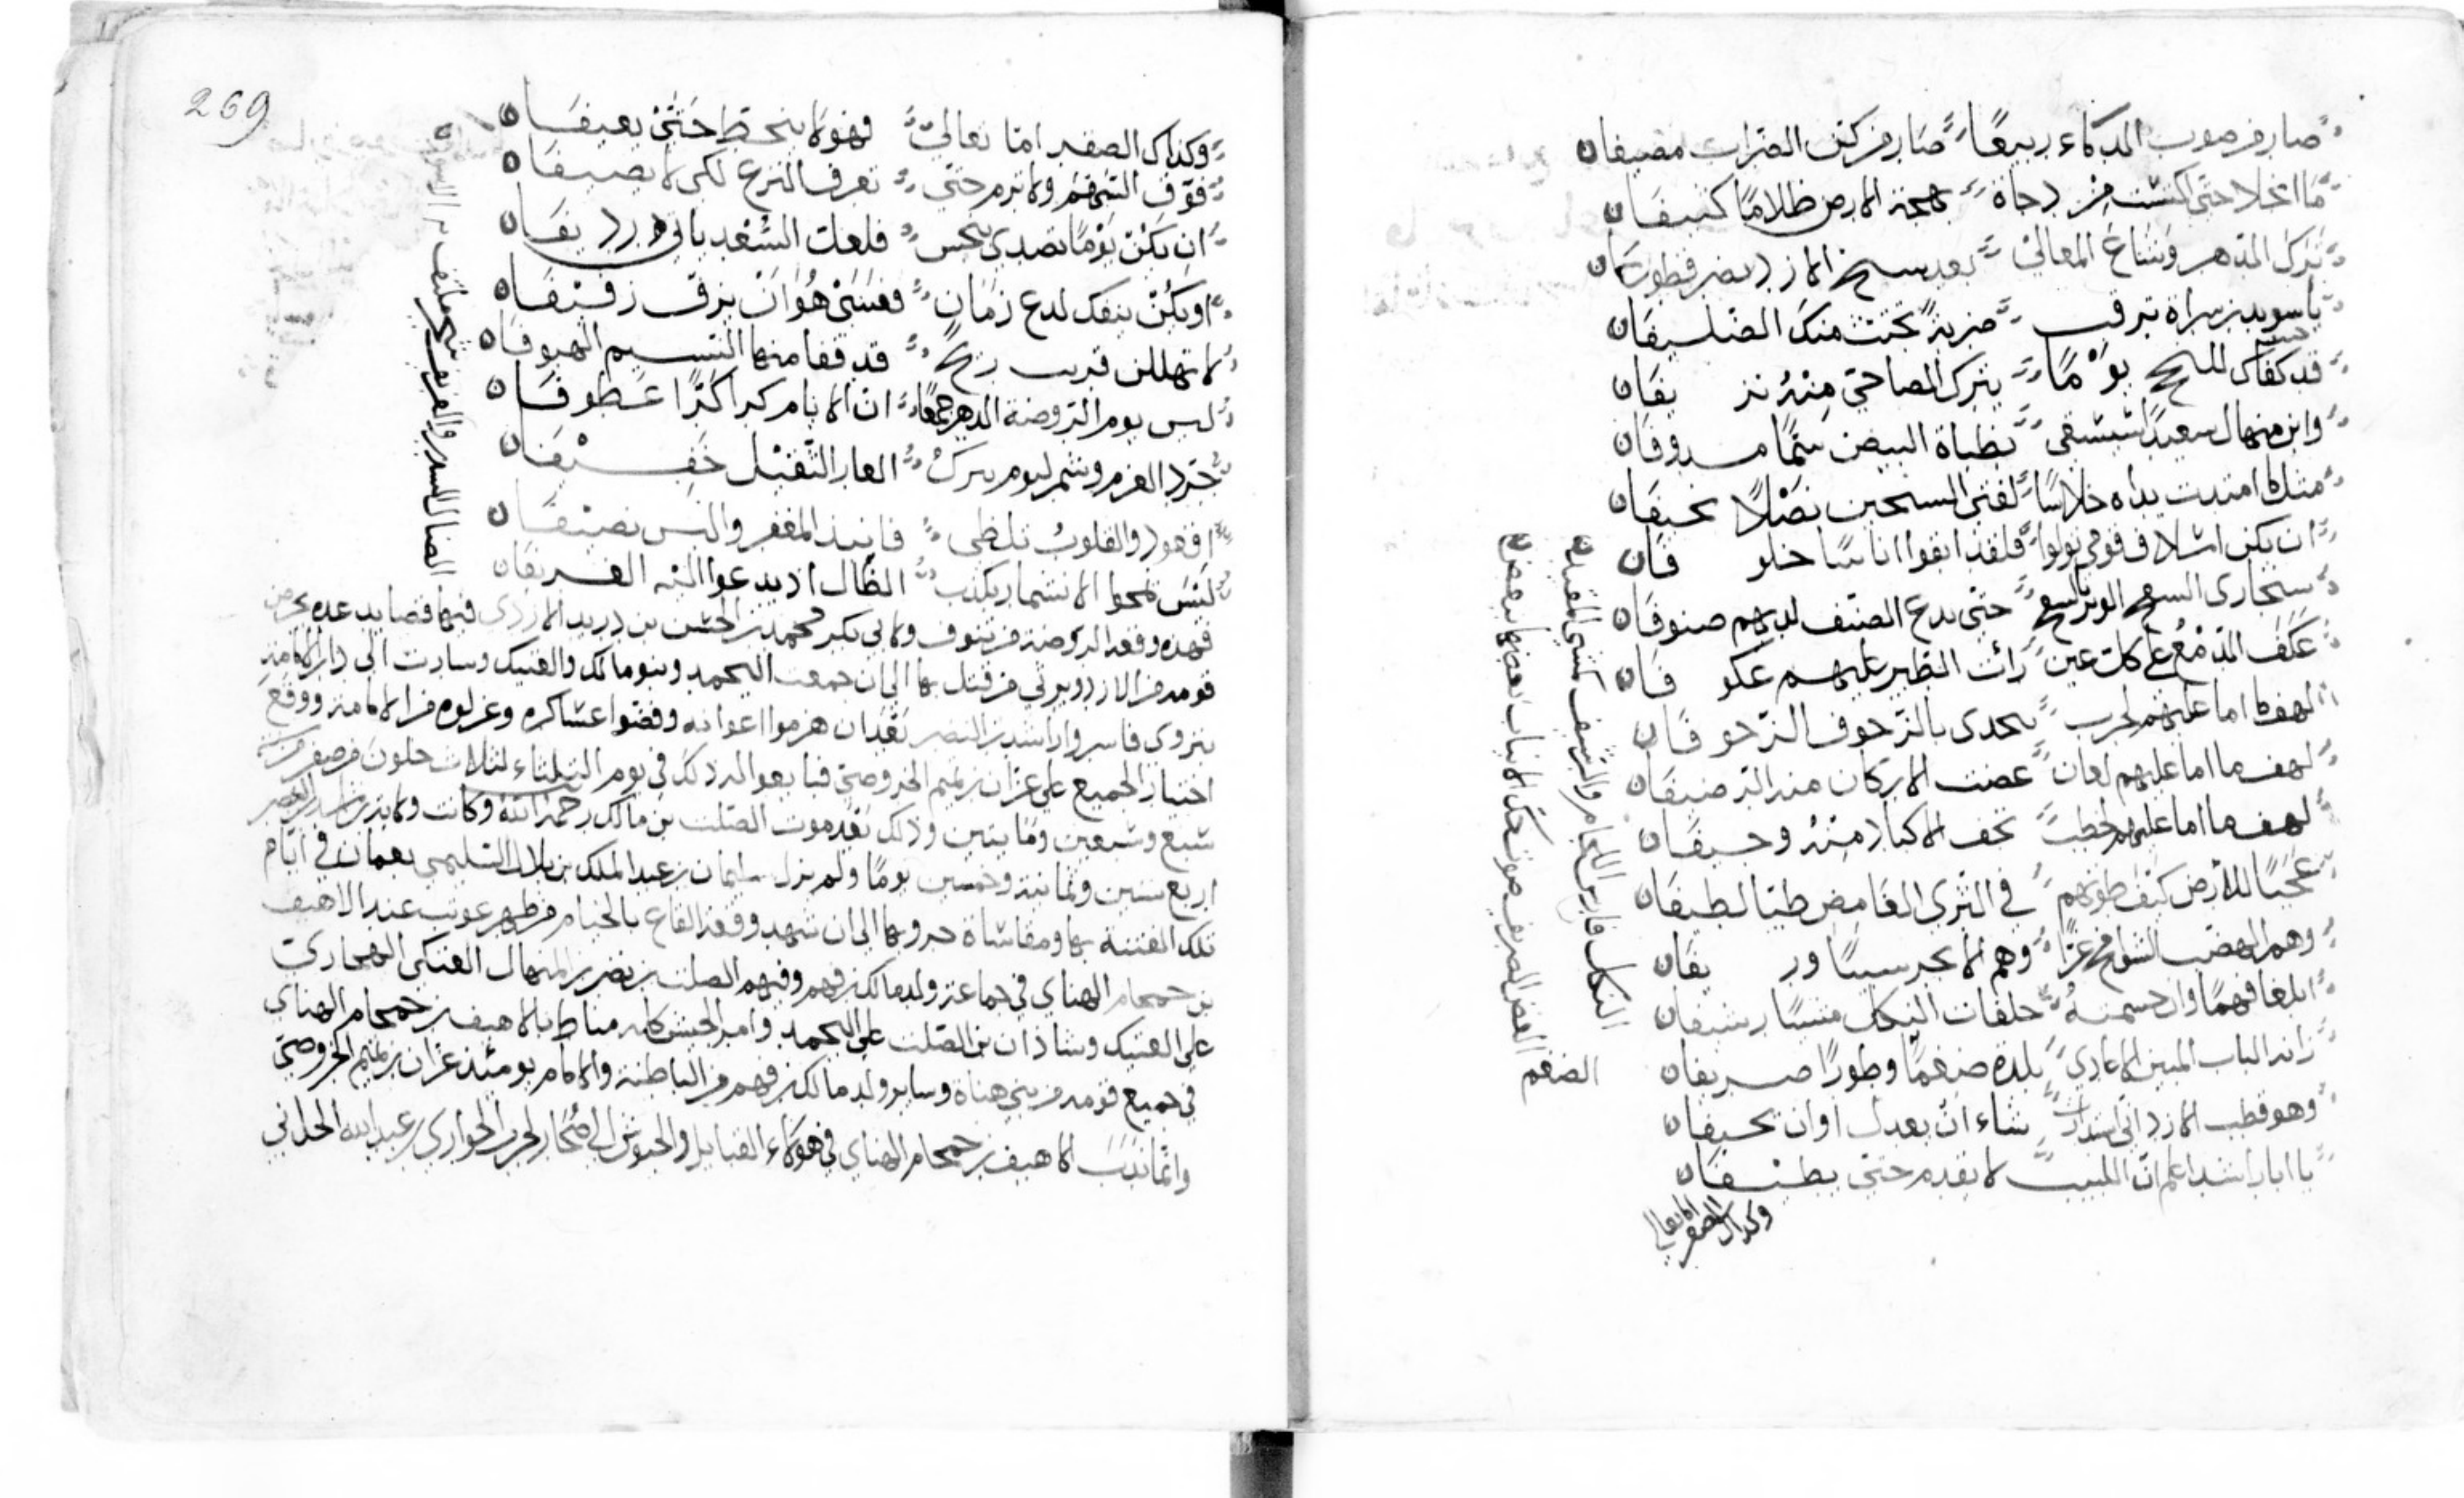 صار من صوب المذكاء ربيعًا صار من كتف الضراب مصيفان
ما انجلا حتى اكتست من دجاه بهجة الارض ظلامًا كثيفان
ترك الدهر وشاغ المعالي بعد سنخ الازد نضر قطوفان
يا سويد بن سراة ترقب ضربة تختث منك الصليفان
قد كفاك يومًا يترك الضاحي منه نزيفان
وابن منهال سعيد سيشقى بظباة البيض سمًا مدوفان
مثلما امتدت يداه خلاسًا لفتى نصلًا نحيفان
ان يكن اسلاف قومي تولوا فلقد ابقوا اناسًا خلوفان
حتى يدع الصنف لديهم صنوفان
عكف الدمع على كل عين رأت الطير عليهم عكوفان
لهف ما اما عليهم لحرب تحدى بالزحوف الزحوفان
لهف ما اما عليهم لعان عضت الاركان منه الرضيفان
لهف ما اما عليهم لخطب تخف الاكباد منه وجيفان
عجبًا للأرض كيف طوتهم في الثرى الغامض طيا لطيفان
وهم الهضب الشوامخ عزًا وهم الابحر سيبًا وريفان
ابلغا فهمًا وان جشمته حلقات النكل مشيًا رسيفان
زاند الباب المبين الاعادي بلده ضغمًا وطورًا صريفان
وهو قطب الازد اني استدارت شاء ان يعدل او ان يحيفان
يا ابا راشد اعلم ان الليث لا يقدم حتى يطيفان
النكل فارس اللجام والرسيف مشي المقيد
الضغم العض الصريف صوت حك الانياب بعضها ببعض
وكذاك الصقر اما تعالى
269
وكذاك الصقر اما تعالى فهو لا ينحط حتى يعيفان
فوق السهم ولا ترم حتى تعرف النزع لكي لا تصيفان
ان يكن يومًا تصدى بنحس فلعل السعد ياتي رديفان
او يكن ينفك لدع زمان فعسى هو ان يرق رفيفان
لا تهللن قرب ريح قد قفا منها النسيم الهيوفان
ليس يوم الروضة الدهر جمعًا ان الايام كرا كرًا عطوفان
جرد العزم وشمر ليوم يترك العار الثقيل خفيفان
اقعود والقلوب تلظى فانبذ المغفر والبس نصيفان
ليس تمحوا الانتمار بكذب الضال اذ يدعوا اليه الغريفان
الضال السدر والغريف شجر ملتف من الاسوقة
فهذه وقعة الروضة من تنوف ولابي بكر محمد بن الحسن بن دريد الازدي فيها قصايد عده يحرض
قومه من الازد ويرثي من قتل بها الى ان جمعت اليحمد وبنو مالك والعتيك وسارت الى دار الامامة
بنزوى فاسروا راشد بن النضر بعد ان هزموا اعوانه وفضوا عساكره وعزلوه من الامامة ووقع
اختيار الجميع على عزان بن تميم الخروصي فبايعوا له وذلك في يوم الثلثاء لثلاث خلون من صفر من سنة
سبع وسبعين ومايتين وذلك بعد موت الصلت بن مالك رحمه الله وكانت ولاية راشد بن النضر
اربع سنين وثمانية وخمسين يومًا ولم يزل سليمان بن عبد الملك بن بلال السليمي بعمان في ايام
تلك الفتنة بها ومقاساة حروبها الى ان شهد وقعة القاع بالخيام من ظهر عوتب عند الاهيف
بن حمحام الهناي في جماعة ولد مالك بن فهم وفيهم الصلت بن نضر بن المنهال العتكي الهجاري
على العتيك وشاذان بن الصلت على اليحمد وامر الجيش كله مناط بالاهيف بن حمحام الهناي
في جميع قومه من بني هناه وساير ولد مالك بن فهم من الباطنة والامام يومئذ عزان بن تميم الخروصي
وانما ندب الاهيف بن حمحام الهناي في هولاء القبايل والجيوش الى صحار لحرب الحواري بن عبد الله الحداني